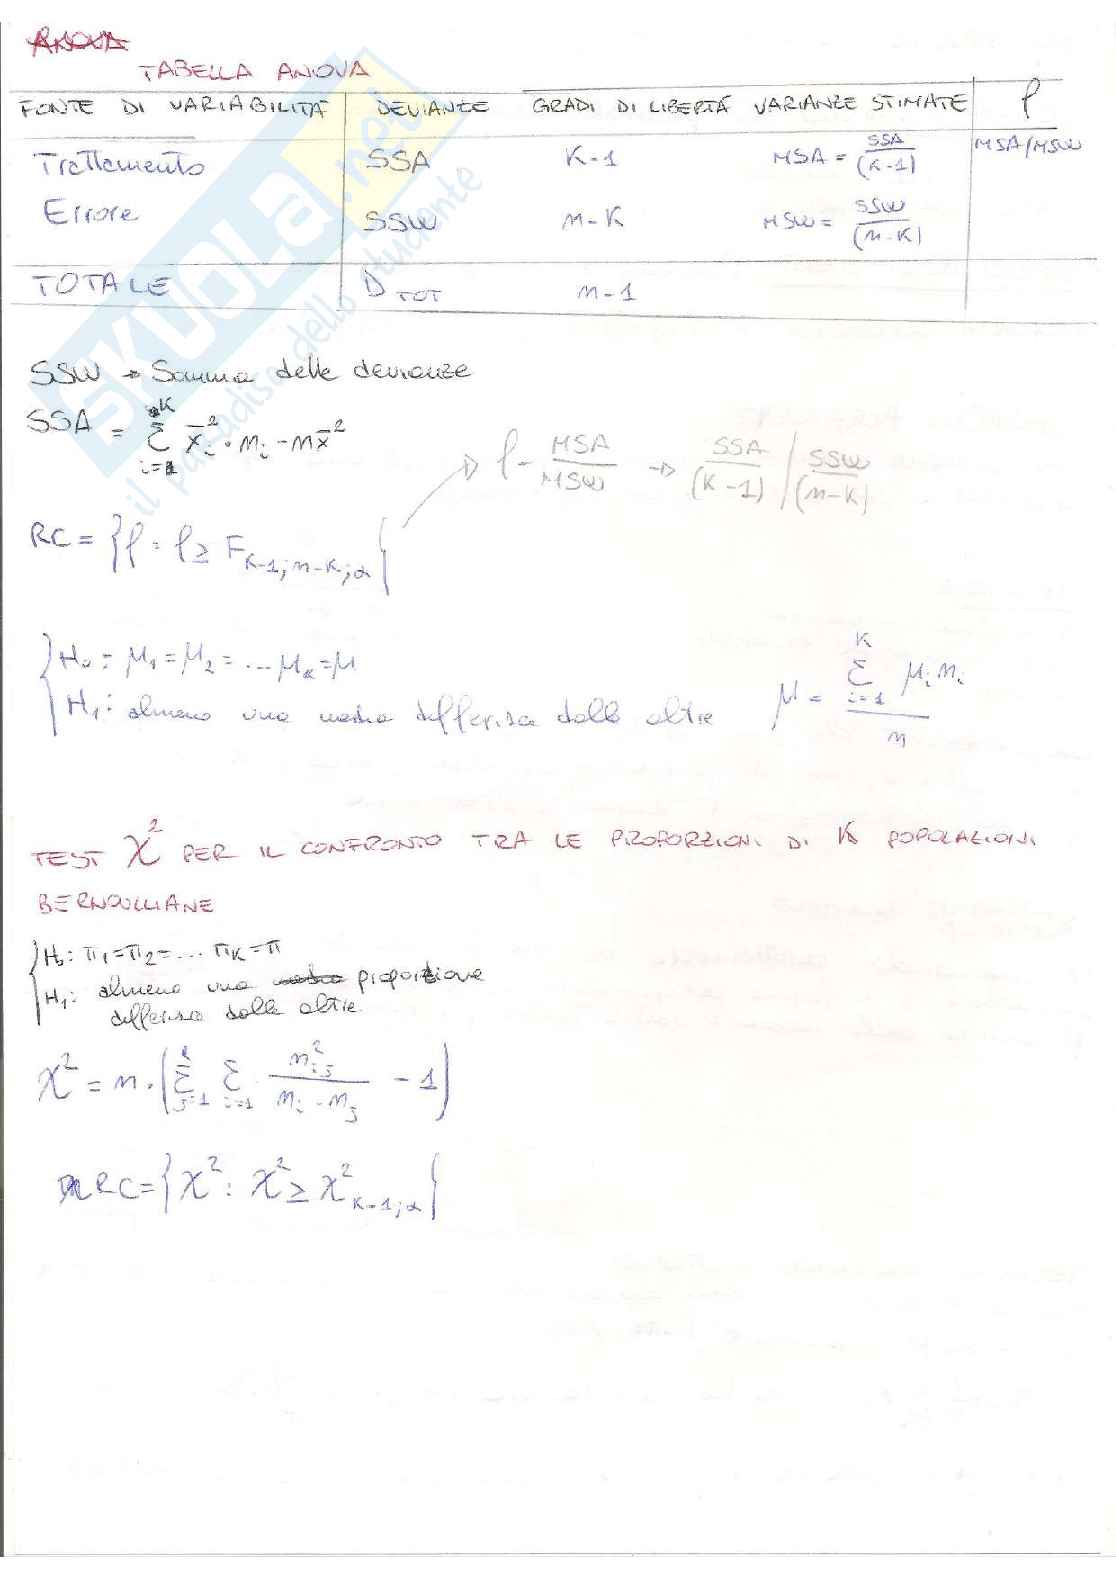 ANOVA
TABELLA ANOVA
FONTE DI VARIABILITÁ DEVIANZE GRADI DI LIBERTÁ VARIANZE STIMATE f
Trattamento SSA K-1 MSA = SSA/(K-1) MSA/MSW
Errore SSW n-K MSW = SSW/(n-K)
TOTALE D TOT n-1
SSW → Somma delle devianze
SSA = Σ_{i=1}^{K} x̄_i² · n_i - n x̄²
f = MSA/MSW → SSA/(K-1) / SSW/(n-K)
RC = {f : f ≥ F_{K-1; n-K; α}}
H₀: μ₁ = μ₂ = ... μ_K = μ
H₁: almeno una media differisca dalle altre μ = Σ_{i=1}^{K} μ_i n_i / n
TEST χ² PER IL CONFRONTO TRA LE PROPORZIONI DI K POPOLAZIONI
BERNOULLIANE
H₀: π₁ = π₂ = ... π_K = π
H₁: almeno una media proporzione
differisca dalle altre
χ² = n · (Σ_{j=1} Σ_{i=1} n_{ij}² / n_i - n_j - 1)
RC = {χ² : χ² ≥ χ²_{K-1; α}}
SKUOLA.net
il paradiso dello studente